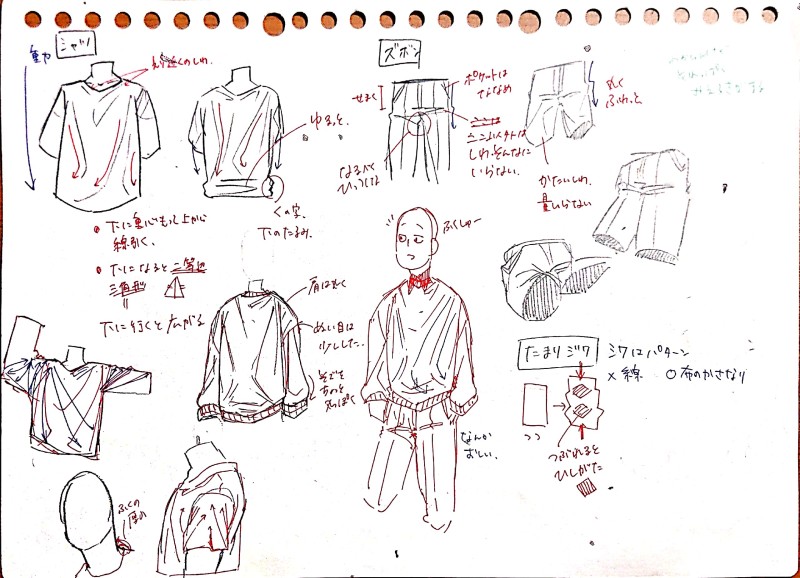 重力
シャツ
ズボン
せまく
ポケットは
ななめ
丸く
ふわっと
ゆるっと
しわ、そんなに
いらない。
かたいしわ。
量いらない
くの字。
下のたるみ。
下に重心もって上から
線引く。
下になると二等辺
三角形
下に行くと広がる
肩は丸く
ぬい目は
少しした。
ふくしゅー
なんか
おしい。
ふくの
厚み
たまりジワ
シワはパターン
×線
○布のかさなり
つつ
つぶれると
ひしがた